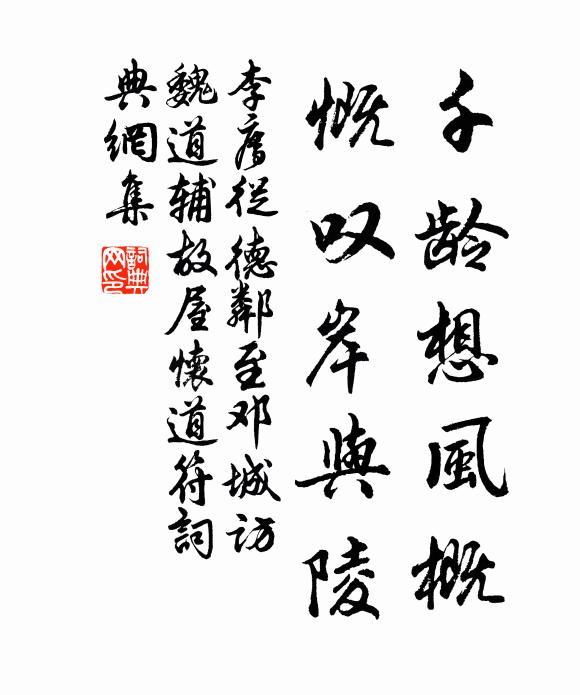 千龄想風概
慨叹岸與陵
李廌從德鄰至邓城访
魏道輔故屋懷道符詞
典網集
詞典网印